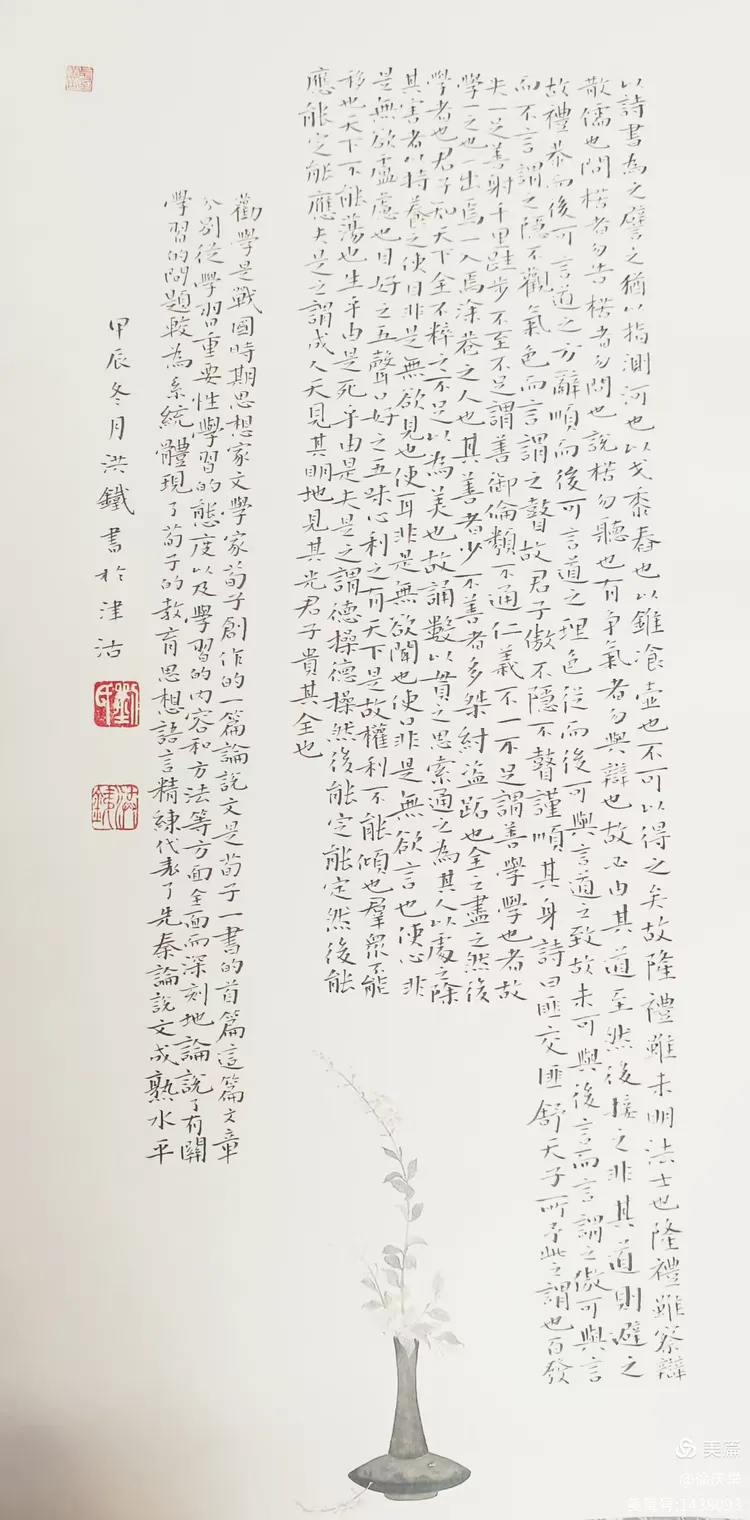 以詩書為之譬之猶以指測河也以戈黍舂也以錐飡壺也不可以得之矣故隆禮雖未明法士也隆禮雖察辯
散儒也問楛者勿告楛者勿問也說楛勿聽也有争氣者勿與辯也故必由其道至然後接之非其道則避之
故禮恭而後可言道之方辭順而後可言道之理色從而後可與言道之致故未可與後言而言謂之傲可與言
而不言謂之隱不觀氣色而言謂之瞽故君子傲不隱不瞽謹順其身詩曰匪交匪舒天子所予此之謂也百發
失一足善射千里跬步不至不足謂善御倫類不通仁義不一不足謂善學學也者故
學一之也一出焉一入焉涂巷之人也其善者少不善者多桀紂盗跖也全之盡之然後
學者也君子知天下全不粹之不足以為美也故誦數以貫之思索通之為其人以處之除
其害者以持養之使目非是無欲見也使耳非是無欲聞也使口非是無欲言也使心非
是無欲慮也目好之五聲口好之五味心利之有天下是故權利不能傾也羣眾不能
移也天下不能蕩也生乎由是死乎由是夫是之謂德操德操然後能定能定然後能
應能定能應夫是之謂成人天見其明地見其光君子貴其全也
勸學是戰國時期思想家文學家荀子創作的一篇論說文是荀子一書的首篇這篇文章
分別從學習重要性學習的態度以及學習的内容和方法等方面全面而深刻地論說了有關
學習的問題較為系統體現了荀子的教育思想語言精練代表了先秦論說文成熟水平
甲辰冬月洪鐵書於津沽
劉氏
洪鐵
美篇
@徐庆举
美篇号:1438093